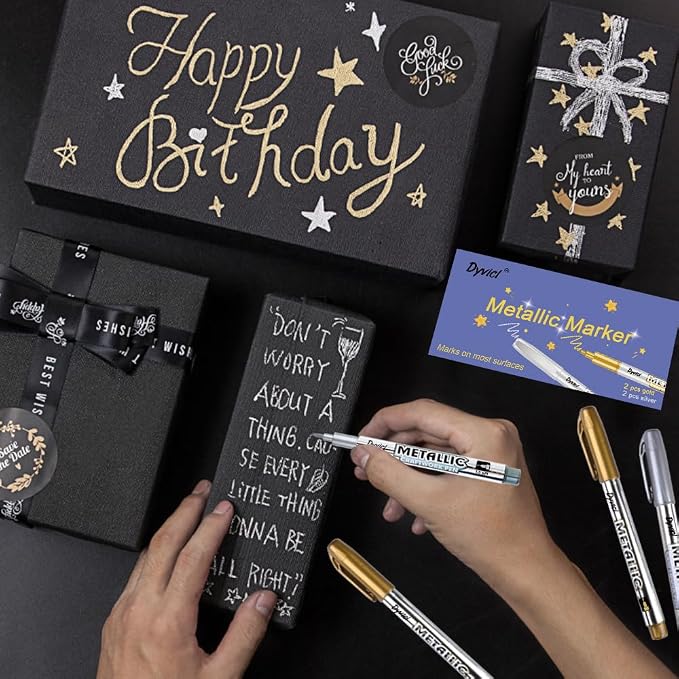 Happy
Birthday
Good
luck
FROM
My heart
TO
yours
Dyvicl
Metallic Marker
Marks on most surfaces
2 pcs gold
2 pcs silver
WISHES
BEST WIS
T WIS
Save
he Date
"DON'T
WORRY
ABOUT A
THING. CAU
SE EVERY
LITTLE THING
ONNA BE
ALL RIGHT!"
Dyvicl METALLIC
CRAFTWORK PEN
METALLIC
METALLIC